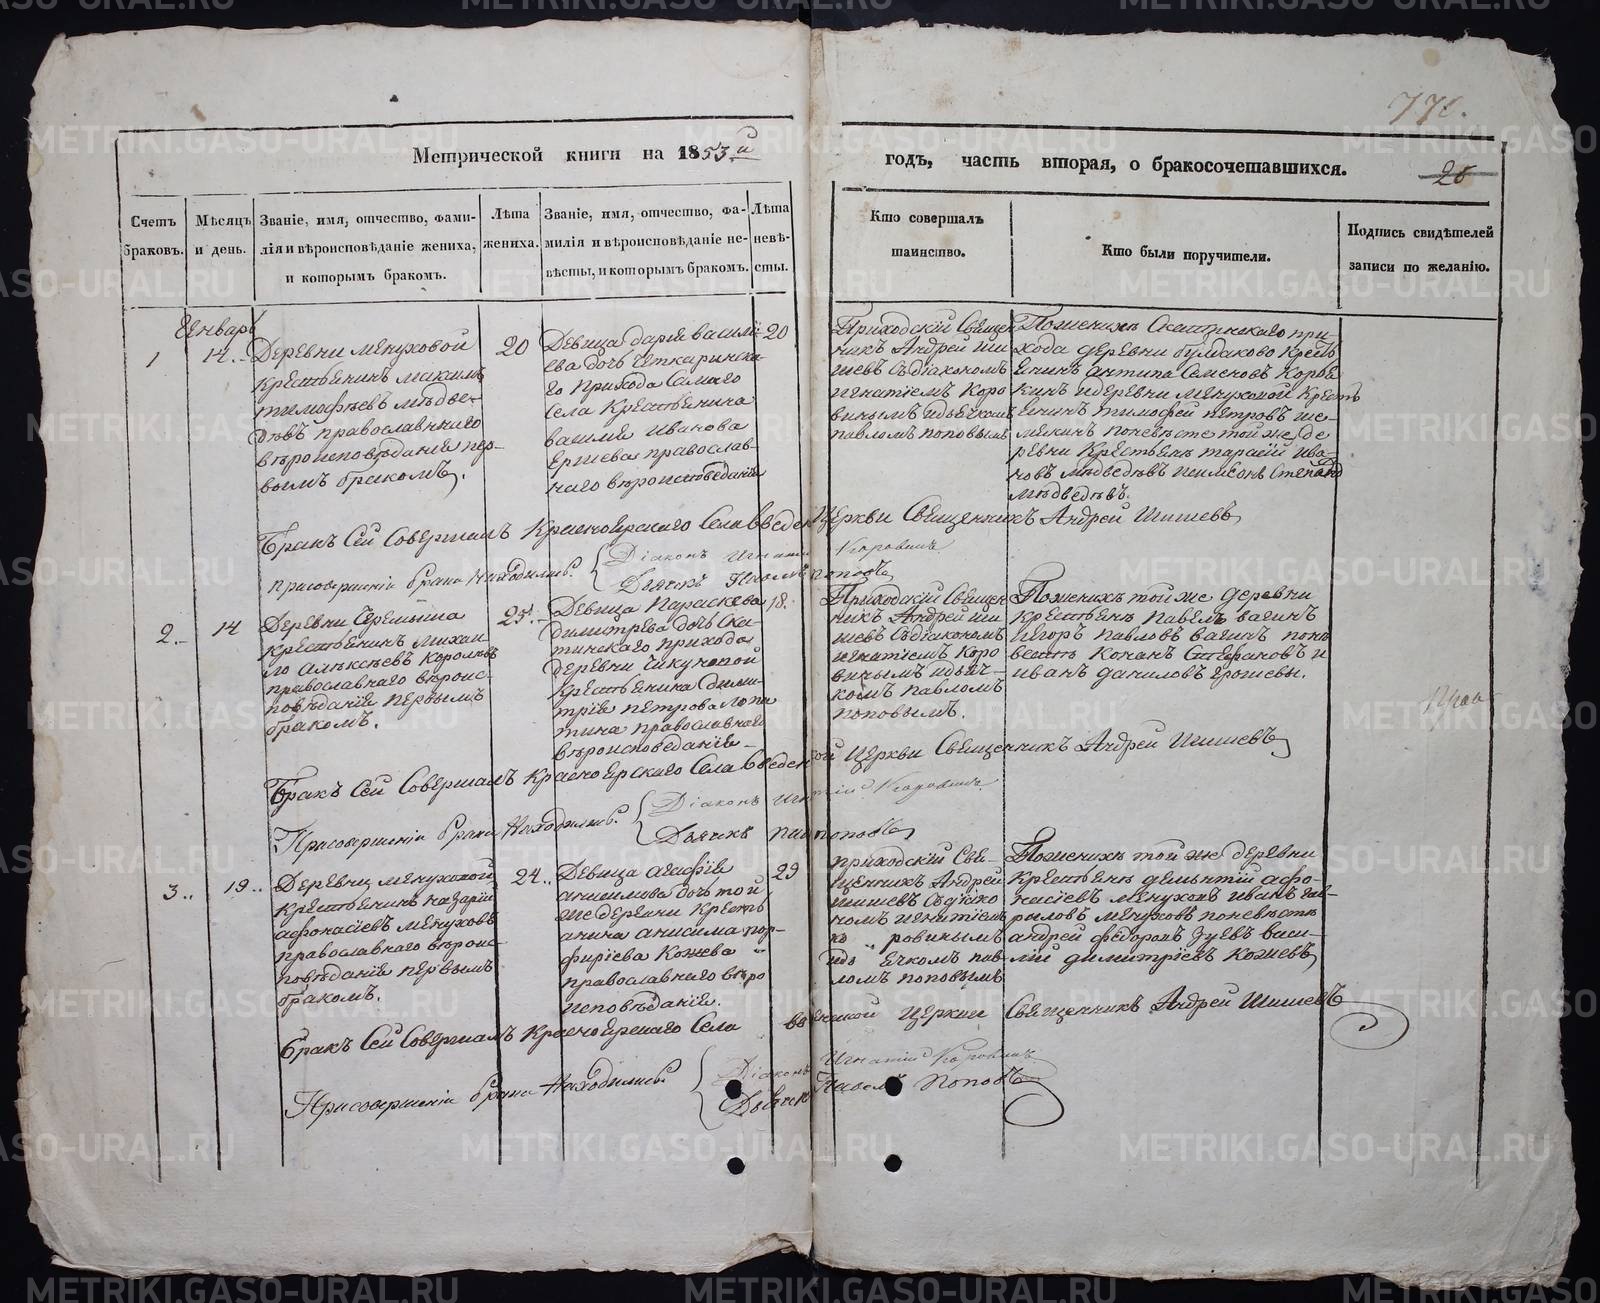 776.
Метрической книги на 1853 й
годъ, часть вторая, о бракосочетавшихся.
26
Счетъ
браковъ.
Мѣсяцъ
и день.
Званіе, имя, отчество, фами-
лія и вѣроисповѣданіе жениха,
и которымъ бракомъ.
Лѣта
жениха.
Званіе, имя, отчество, фа-
милія и вѣроисповѣданіе не-
вѣсты, и которымъ бракомъ.
Лѣта
невѣ-
сты.
Кто совершалъ
таинство.
Кто были поручители.
Подпись свидѣтелей
записи по желанію.
Генварь
1
14.
Деревни Менуховой
крестьянинъ Максимъ
тимофѣевъ мѣдве-
дѣвъ православнаго
вѣроисповѣдания пер-
вымъ бракомъ.
20
Девица дария васили-
ева дочь четкаринска-
го прихода самаго
села крестьянина
василия иванова
православ-
наго вѣроисповѣдания
20
Приходский священ
никъ Андрей ши
шевъ съ діакономъ
игнатіемъ Коро
винымъ и дьячкомъ
павломъ поповымъ
По женихѣ Скатинскаго при-
хода деревни булдаково крестъ
янинъ антипа Семеновъ
и деревни менуховой крестъ
янинъ тимофей петровъ ше-
по невѣсте той же де
ревни крестьянъ тарасий ива-
новъ мѣдведѣвъ
мѣдведѣвъ.
Бракъ сей совершалъ Красноярскаго села введен церкви священникъ Андрей Шишевъ
при совершеніи брака находились: Діаконъ Игнатий Коровинъ
Дьячекъ Павелъ поповъ
2.
14
Деревни
крестьянинъ михаи
ло алѣксѣевъ
православнаго вѣроис-
повѣдания первымъ
бракомъ.
25.
Девица Параскева
димитрева дочь ска-
тинскаго прихода
деревни чикуновой
крестьянина дими-
трия петрова лопа
тина православнаго
вѣроисповедания
18.
Приходский священ
никъ Андрей ши
шевъ съ діакономъ
игнатіемъ Коро
винымъ и дьяч-
комъ павломъ
поповымъ.
По женихѣ той же деревни
крестьянъ павелъ вагинъ
игоръ павловъ вагинъ по не
весте Конанъ Стефановъ и
иванъ даниловъ ерошевы.
Бракъ сей совершалъ Красноярскаго села введенской церкви священникъ Андрей Шишевъ
При совершеніи брака находились: Діаконъ Игнатий Коровинъ
Дьячекъ пав поповъ
3.
19.
Деревни менуховой
крестьянинъ назарий
афонасиевъ менуховъ
православнаго вѣроис-
повѣдания первымъ
бракомъ.
24.
Девица агафия
анисимова дочь той
же деревни кресть
янина анисима пор-
фириева Кожева
православнаго вѣро
исповѣдания.
29
приходский Свя-
щенникъ Андрей
шишевъ съ діако
номъ игнатіемъ
ко ровинымъ
и дь ячкомъ пав-
ломъ поповымъ
По женихѣ той же деревни
крестьянъ дементий афо-
насиевъ менуховъ иванъ гав-
риловъ менуховъ по невѣстѣ
андрей федоровъ зуевъ васи-
лий димитриевъ кожевъ
Бракъ сей совершалъ Красноярскаго села введенской церкви священникъ Андрей Шишевъ
При совершеніи брака находились: Діаконъ Игнатий Коровинъ
Дьячекъ Павелъ поповъ
METRIKI.GASO-URAL.RU